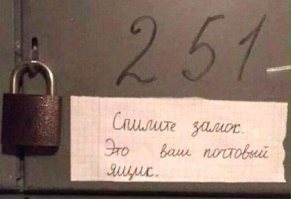 251
Спилите замок.
Это ваш почтовый
ящик.